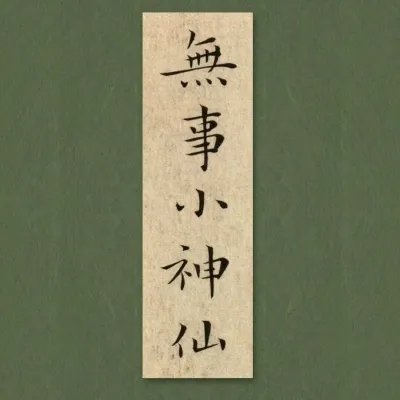 無事小神仙